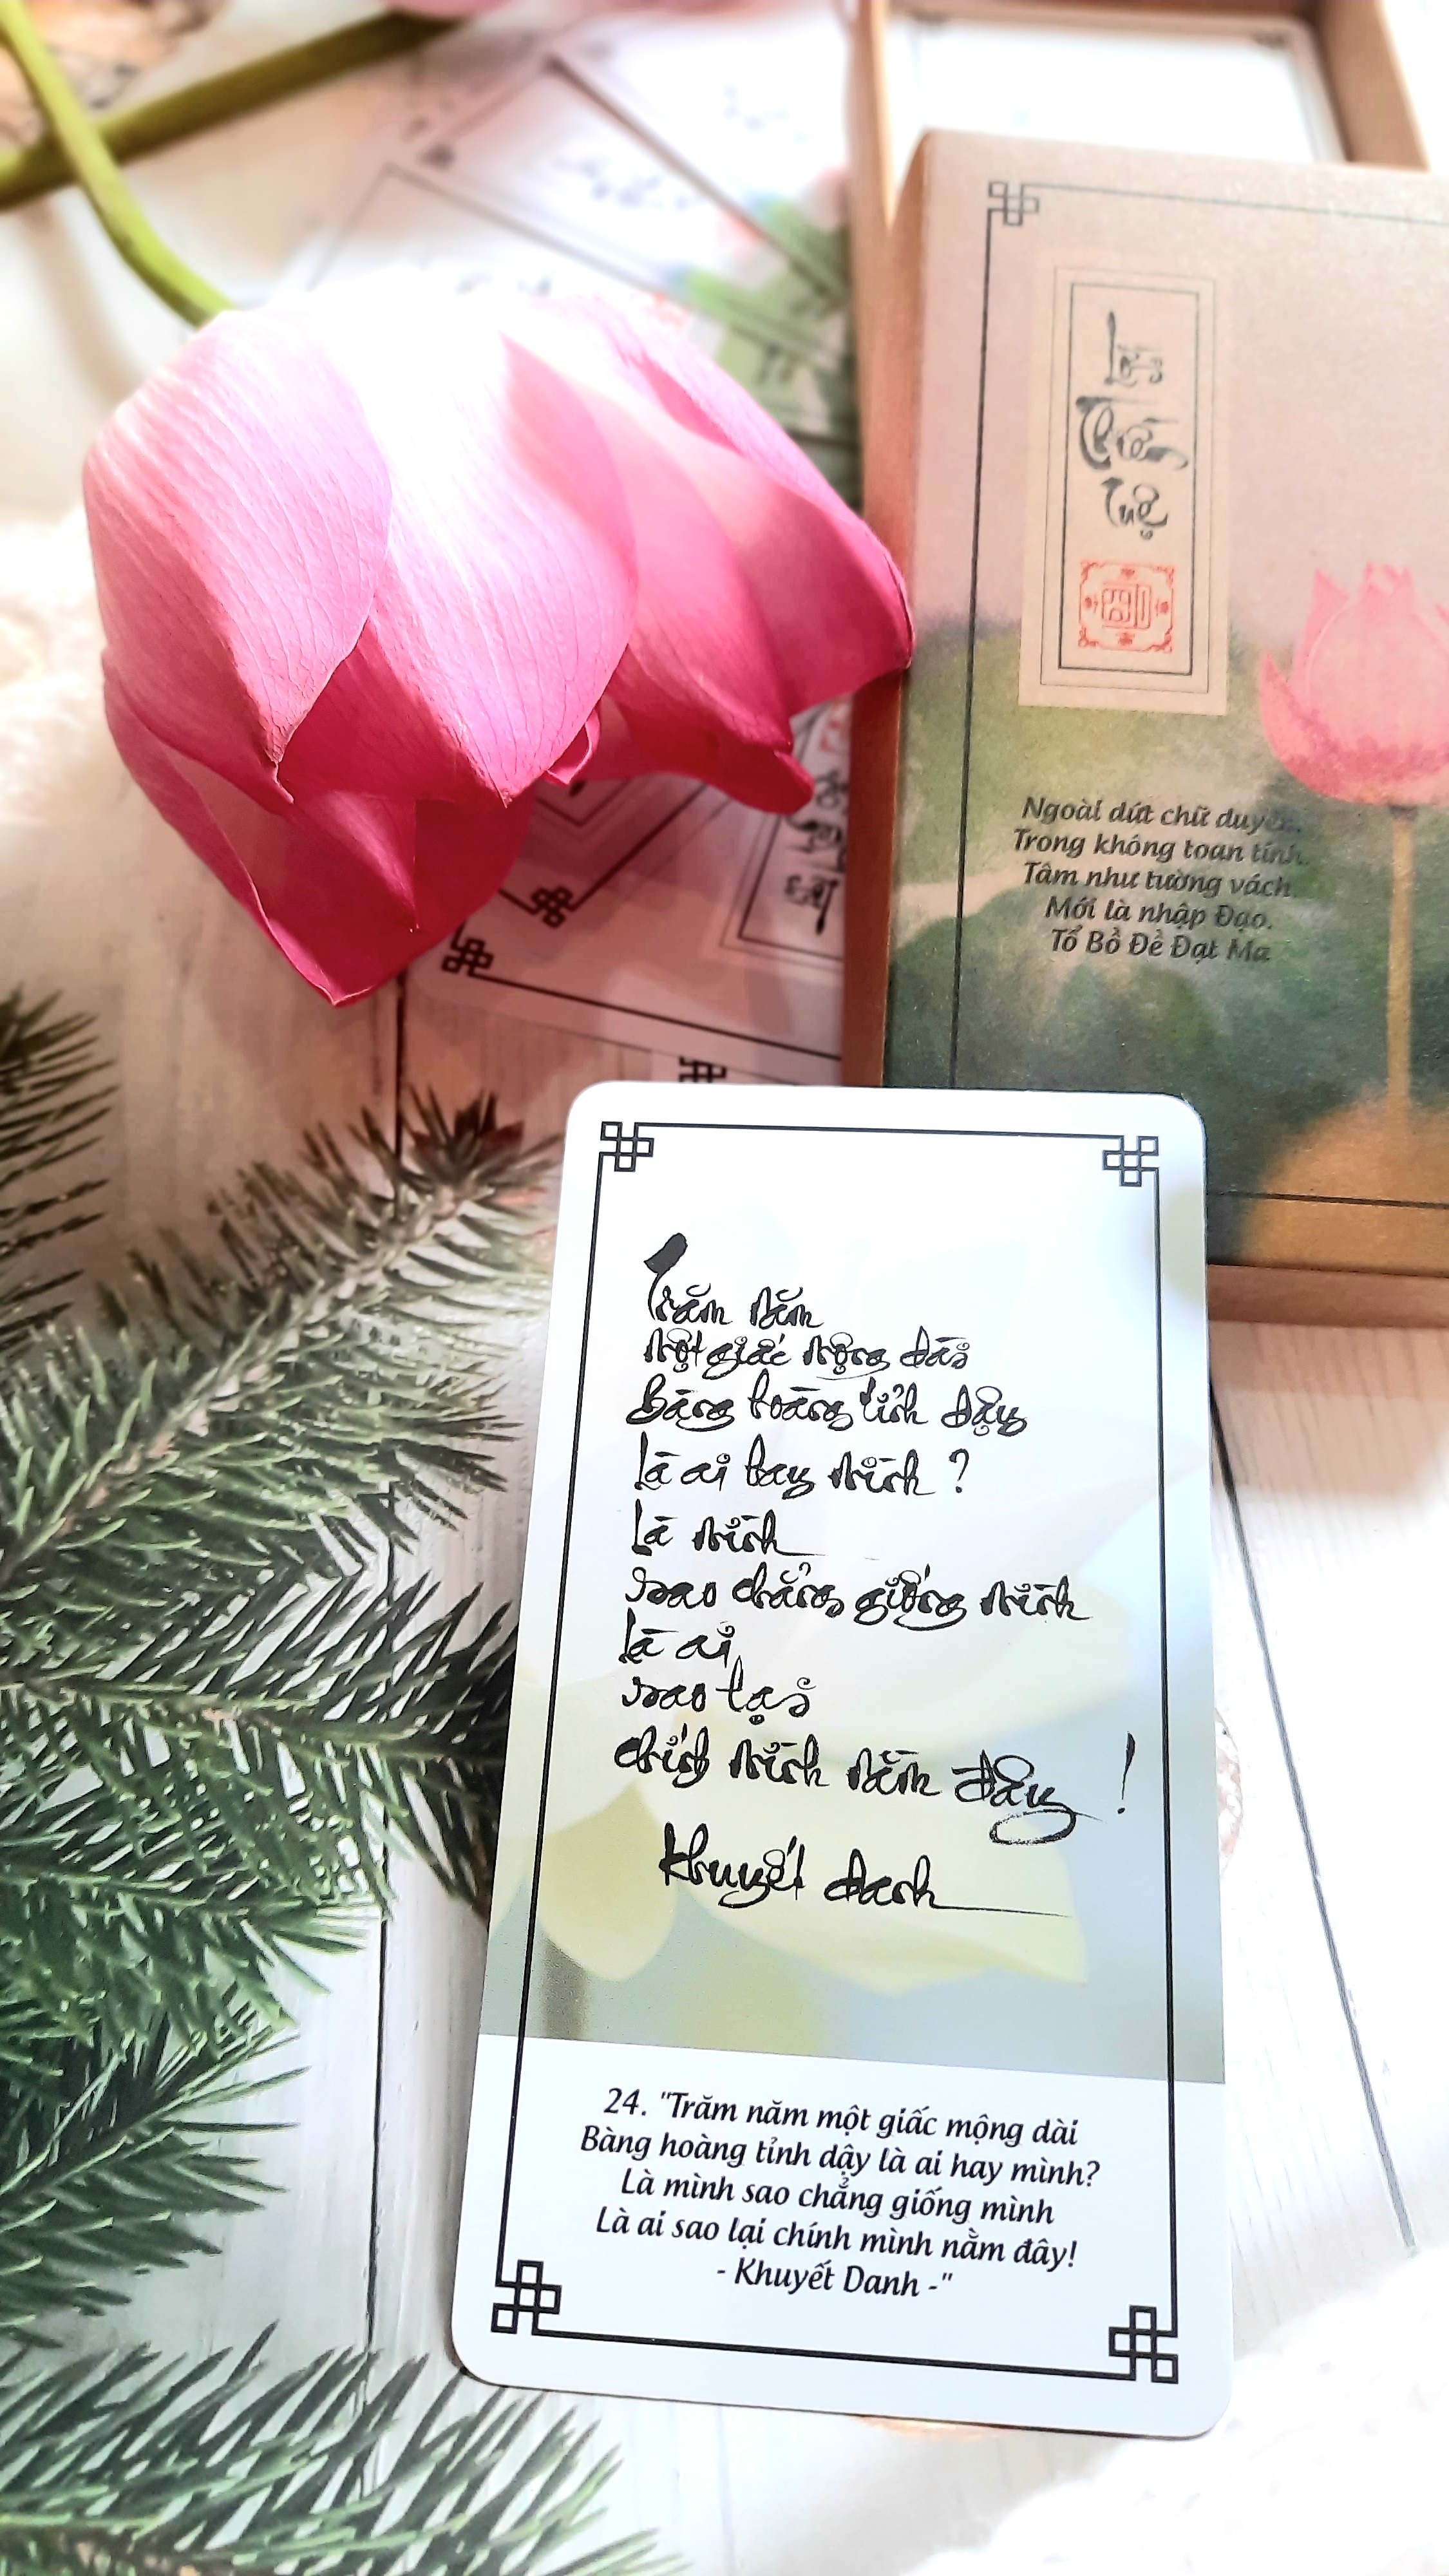 Tuệ
Ngoài dứt chữ duyên.
Trong không toan tính.
Tâm như tường vách.
Mới là nhập Đạo.
Tổ Bồ Đề Đạt Ma
Trăm năm
một giấc mộng dài
Bàng hoàng tỉnh dậy
là ai hay mình ?
Là mình
sao chẳng giống mình
là ai
sao lại
chính mình nằm đây !
Khuyết danh
24. "Trăm năm một giấc mộng dài
Bàng hoàng tỉnh dậy là ai hay mình?
Là mình sao chẳng giống mình
Là ai sao lại chính mình nằm đây!
- Khuyết Danh -"